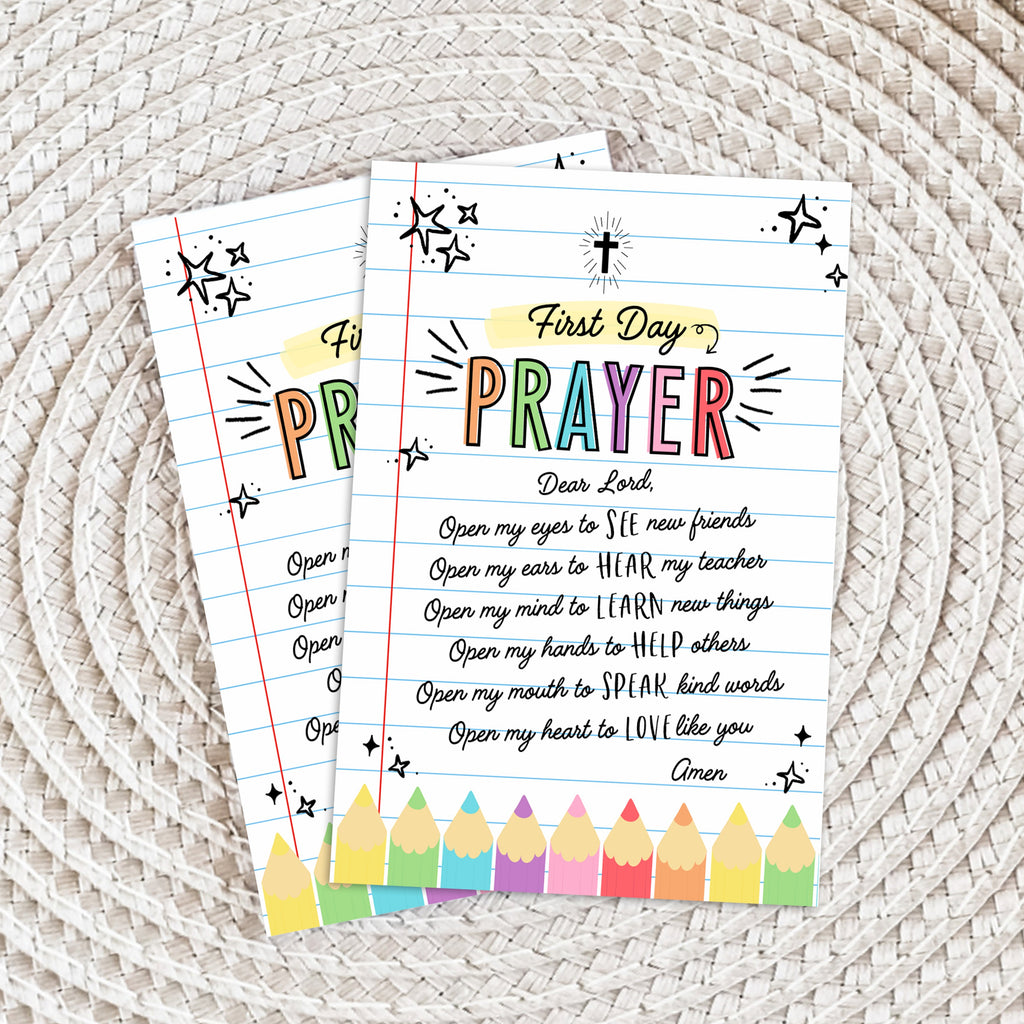 First Day
PRAYER
Dear Lord,
Open my eyes to SEE new friends
Open my ears to HEAR my teacher
Open my mind to LEARN new things
Open my hands to HELP others
Open my mouth to SPEAK kind words
Open my heart to LOVE like you
Amen
Fi
PR
Open
Open
Open
O
Ope